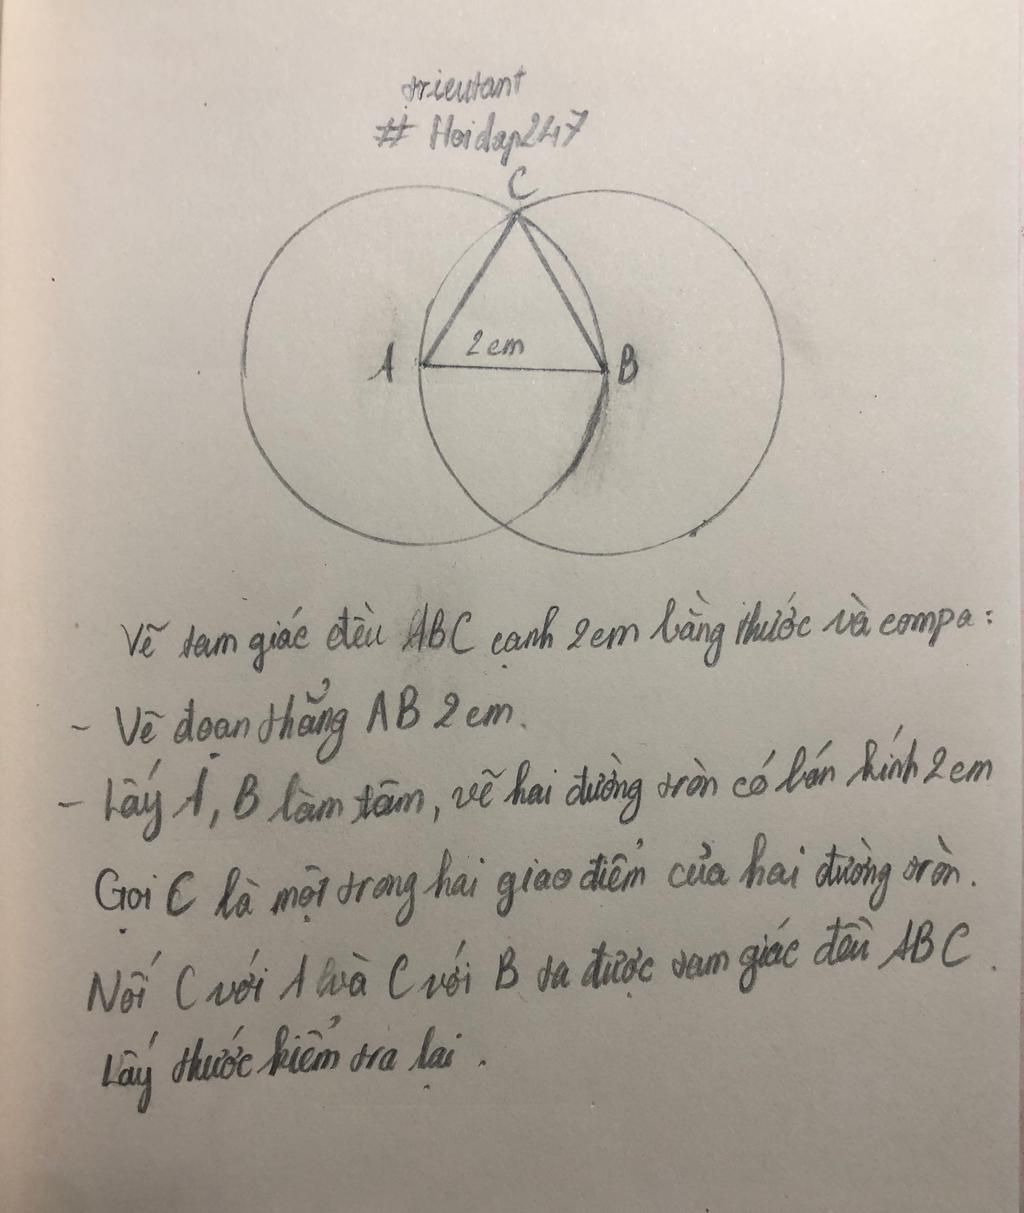 trieutant
# Hoidap247
C
2 cm
A B
Vẽ tam giác đều ABC cạnh 2 cm bằng thước và compa :
- Vẽ đoạn thẳng AB 2 cm.
- Lấy A, B làm tâm, vẽ hai đường tròn có bán kính 2 cm
Gọi C là một trong hai giao điểm của hai đường tròn.
Nối C với A và C với B ta được tam giác đều ABC.
Lấy thước kiểm tra lại.